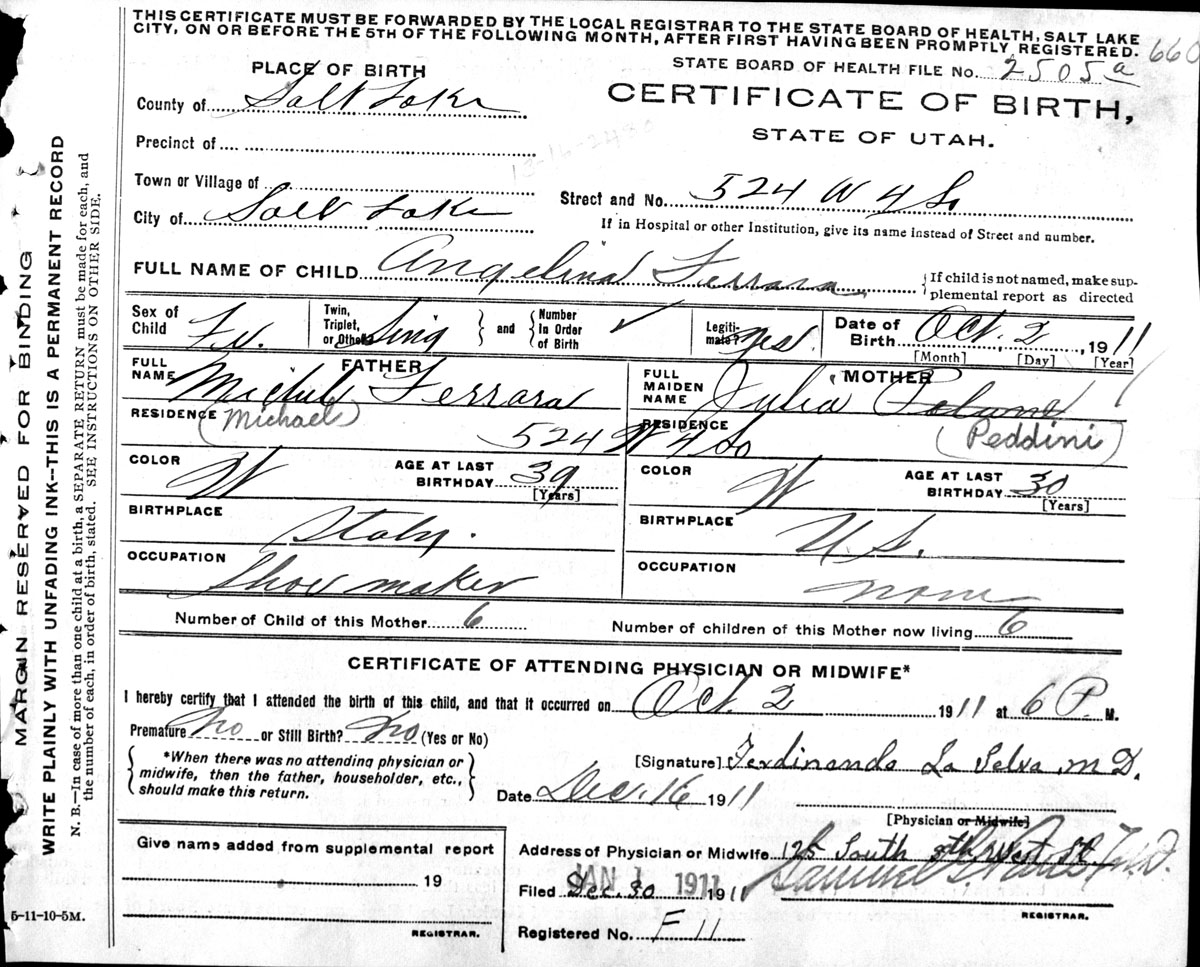 THIS CERTIFICATE MUST BE FORWARDED BY THE LOCAL REGISTRAR TO THE STATE BOARD OF HEALTH, SALT LAKE
CITY, ON OR BEFORE THE 5TH OF THE FOLLOWING MONTH, AFTER FIRST HAVING BEEN PROMPTLY REGISTERED. 660
STATE BOARD OF HEALTH FILE No. 2505a
PLACE OF BIRTH
CERTIFICATE OF BIRTH,
STATE OF UTAH.
County of Salt Lake
Precinct of
Town or Village of
City of Salt Lake
Street and No. 524 W 4 So
If in Hospital or other Institution, give its name instead of Street and number.
FULL NAME OF CHILD Angelina Ferrara
{If child is not named, make sup-
plemental report as directed
Sex of Child Fe.
Twin, Triplet, or Other? Sing } and { Number in Order of Birth ✓
Legiti-mate? Yes.
Date of Birth Oct. 2, 1911
[Month] [Day] [Year]
FATHER
FULL NAME Michele Ferrara
(Michael)
MOTHER
FULL MAIDEN NAME Julia
(Peddini)
RESIDENCE 524 W 4 So
RESIDENCE
COLOR W AGE AT LAST BIRTHDAY 39 [Years]
COLOR W AGE AT LAST BIRTHDAY 30 [Years]
BIRTHPLACE Italy.
BIRTHPLACE U. S.
OCCUPATION Shoe maker
OCCUPATION None
Number of Child of this Mother 6 Number of children of this Mother now living 6
CERTIFICATE OF ATTENDING PHYSICIAN OR MIDWIFE*
I hereby certify that I attended the birth of this child, and that it occurred on Oct. 2 1911 at 6 P. M.
Premature No or Still Birth? No (Yes or No)
{*When there was no attending physician or
midwife, then the father, householder, etc.,
should make this return.}
[Signature] Ferdinando La Selva M D.
Date Dec. 16 1911
[Physician or Midwife]
Address of Physician or Midwife 125 South 5th West St.
Give name added from supplemental report
19
REGISTRAR.
Filed Dec 30 1911
JAN 1 1911
Samuel G. Paul M.D.
REGISTRAR.
Registered No. F 11
5-11-10-5M.
MARGIN RESERVED FOR BINDING
WRITE PLAINLY WITH UNFADING INK—THIS IS A PERMANENT RECORD
N. B.—In case of more than one child at a birth, a SEPARATE RETURN must be made for each, and
the number of each, in order of birth, stated. SEE INSTRUCTIONS ON OTHER SIDE.